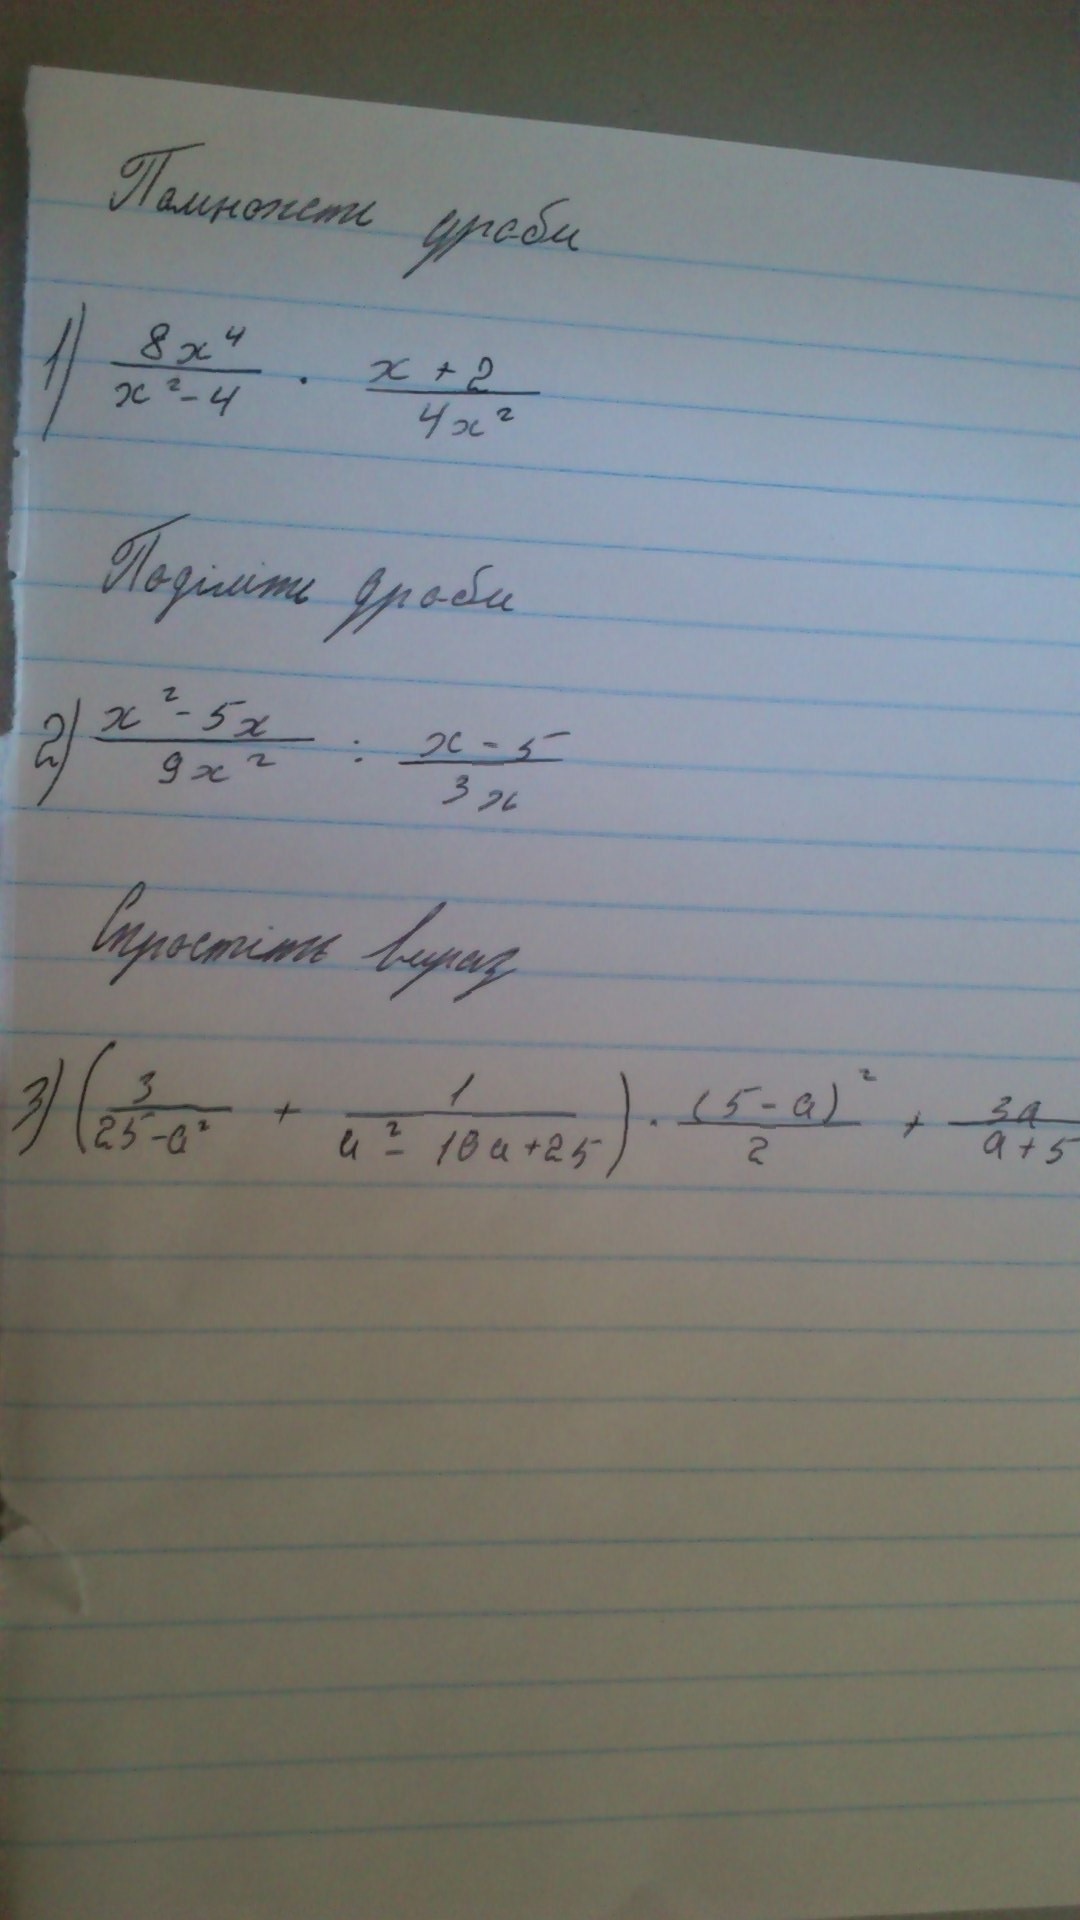 Помножити дроби
1) 8x⁴/(x²-4) · (x+2)/(4x²)
Поділіть дроби
2) (x²-5x)/(9x²) : (x-5)/(3x)
Спростіть вираз
3) (3/(25-a²) + 1/(a²-10a+25)) · (5-a)²/2 + 3a/(a+5)